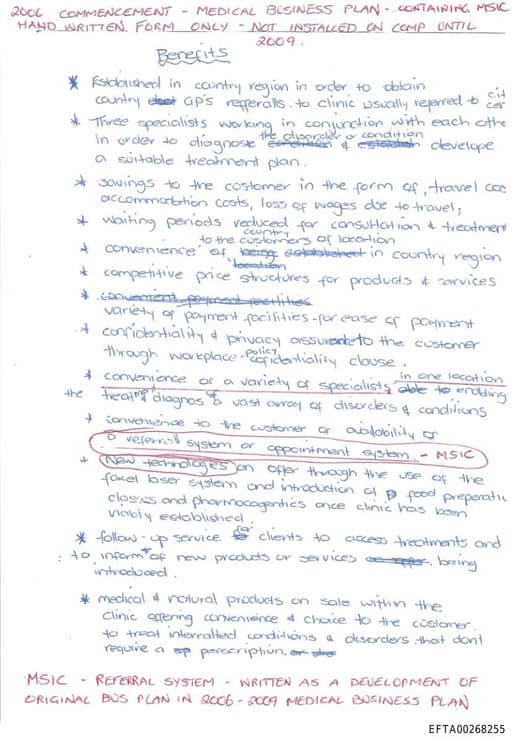 2006 COMMENCEMENT - MEDICAL BUSINESS PLAN - CONTAINING MSIC
HAND WRITTEN FORM ONLY - NOT INSTALLED ON COMP UNTIL
2009.
Benefits
* Established in country region in order to obtain
country GP's refferalls. to clinic usually referred to cit
cer
* Three specialists working in conjunction with each othe
the disorder or condition
in order to diagnose & develope
a suitable treatment plan.
* savings to the customer in the form of, travel
accommodation costs, loss of wages due to travel,
* waiting periods reduced for consultation & treatment
country
to the customers of location
* convenience of being established in country region
location
* competitive price structures for products & services
* convenient payment facilities
variety of payment facilities - for ease of payment
* confidentiality & privacy assurance to the customer
through workplace policy confidentiality clause.
* convenience of a variety of specialists in one location able to enabling
the treatment diagnos of a vast array of disorders & conditions
* convenience to the customer of availability of
a referral system or appointment system. - MSIC
* New technologies on offer through the use of the
facel laser system and introduction of food preperatic
classes and pharmocogentics once clinic has been
viably established.
* follow-up service for clients to access treatments and
: to inform of new products or services being
introduced.
* medical & natural products on sale within the
clinic offering convenience & choice to the customer.
to treat interralted conditions & disorders that dont
require a perscription.
MSIC - REFERRAL SYSTEM - WRITTEN AS A DEVELOPMENT OF
ORIGINAL BUS PLAN IN 2006 - 2009 MEDICAL BUSINESS PLAN
EFTA00268255